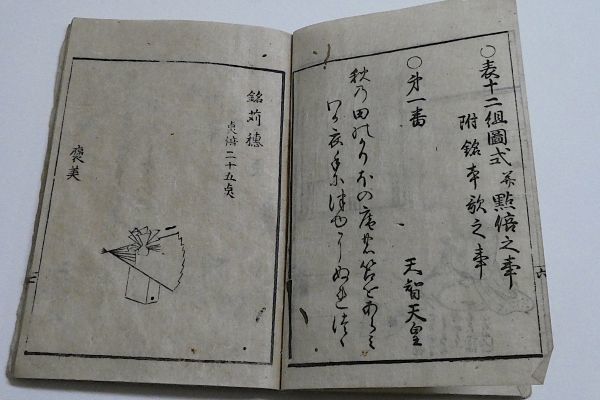 ○表十二組圖式并點倍之事
附銘本歌之事
○第一番
天智天皇
秋乃田のかりほの庵の苫をあらみ
わか衣手は露にぬれつゝ
六
銘苅穗
点倍二十五点
褒美